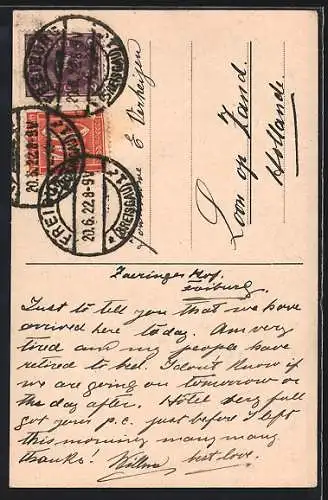 FREIBURG
(BREISGAU) 2
20.6.22.8-9V
E Verheijen
Loon op Zand.
Hollande.
Zaeringer Hof.
Freiburg.
Just to tell you that we have
arrived here to-day. Am very
tired and my people have
retired to bed. I don't know if
we are going on tomorrow or
the day after. Hôtel very full
got your p.c. just before I left
this morning many many
thanks! best love.